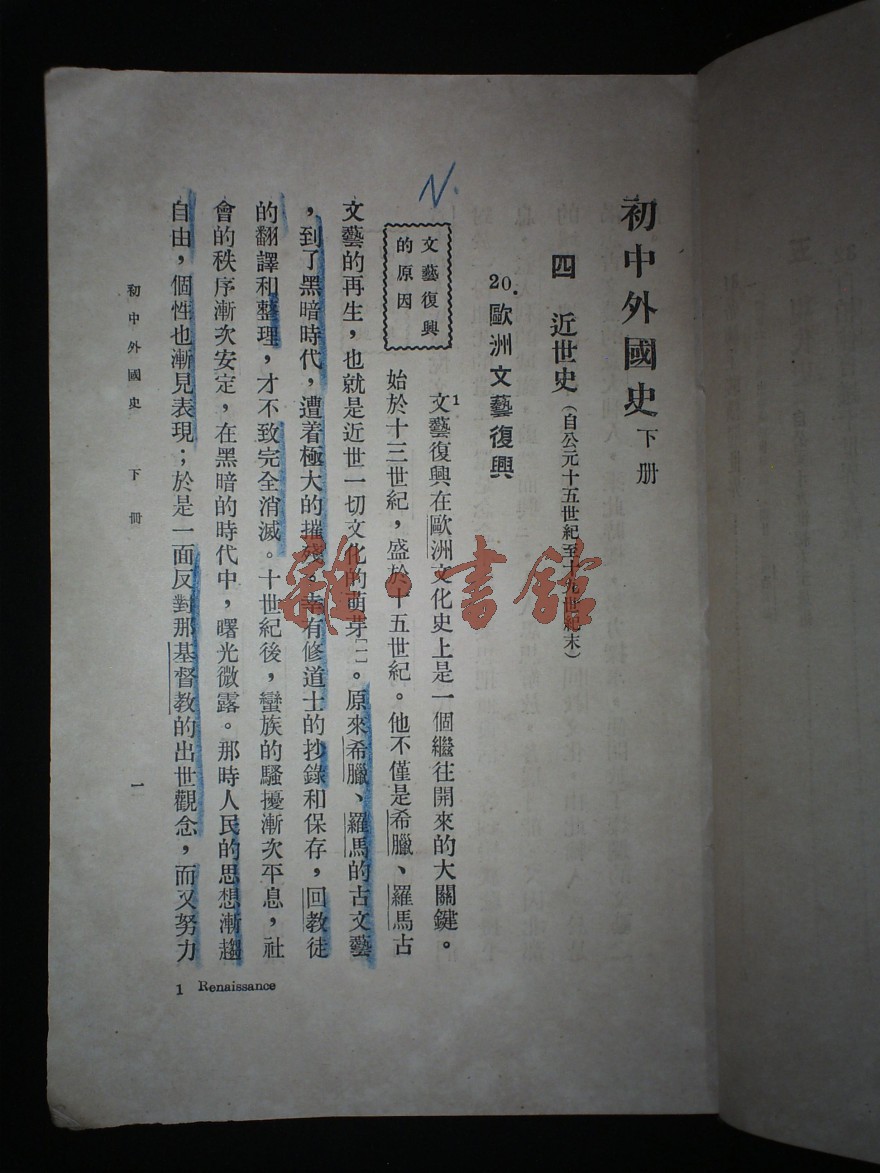 初中外國史 下册
四 近世史（自公元十五世紀至十九世紀末）
20. 歐洲文藝復興
N.
文藝復興
的原因
文藝復興1在歐洲文化史上是一個繼往開來的大關鍵。
始於十三世紀，盛於十五世紀。他不僅是希臘、羅馬古
文藝的再生，也就是近世一切文化的萌芽[一]。原來希臘、羅馬的古文藝
，到了黑暗時代，遭着極大的摧殘。幸有修道士的抄錄和保存，回教徒
的翻譯和整理，才不致完全消滅。十世紀後，蠻族的騷擾漸次平息，社
會的秩序漸次安定，在黑暗的時代中，曙光微露。那時人民的思想漸趨
自由，個性也漸見表現；於是一面反對那基督教的出世觀念，而又努力
1 Renaissance
初中外國史 下冊 一
雜·書館